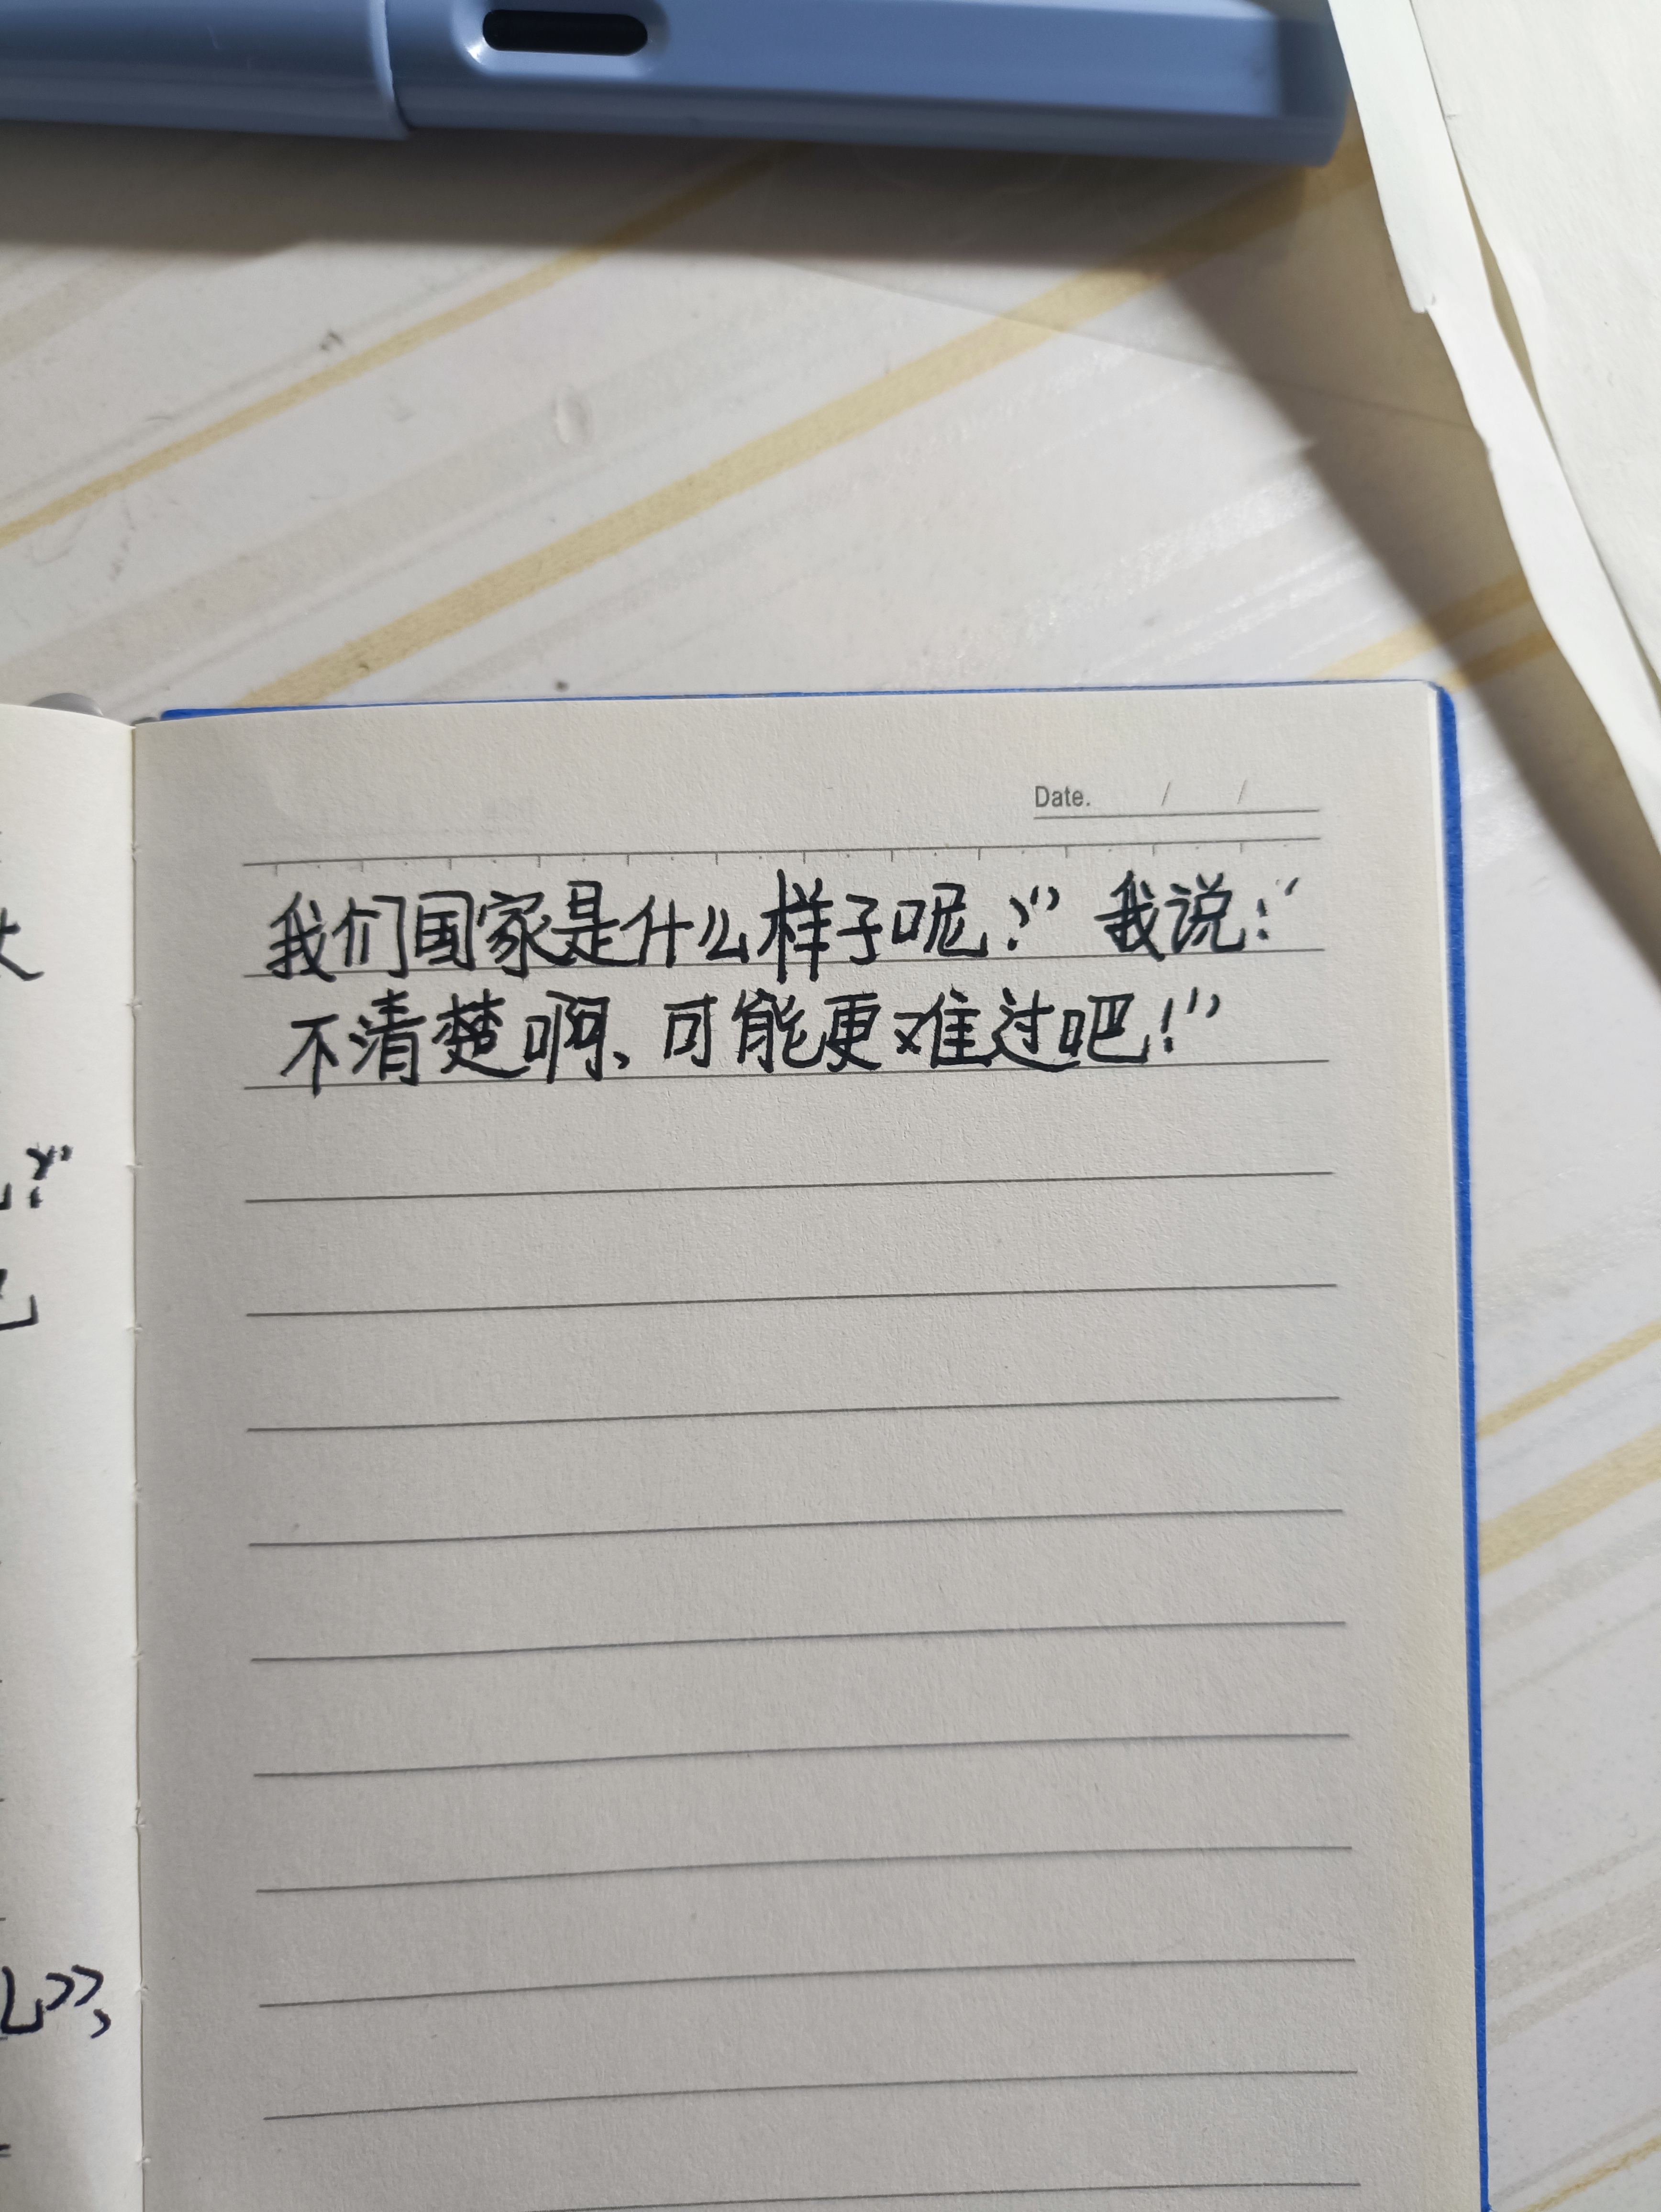 Date. / /
我们国家是什么样子呢?” 我说:“
不清楚啊、可能更难过吧!”